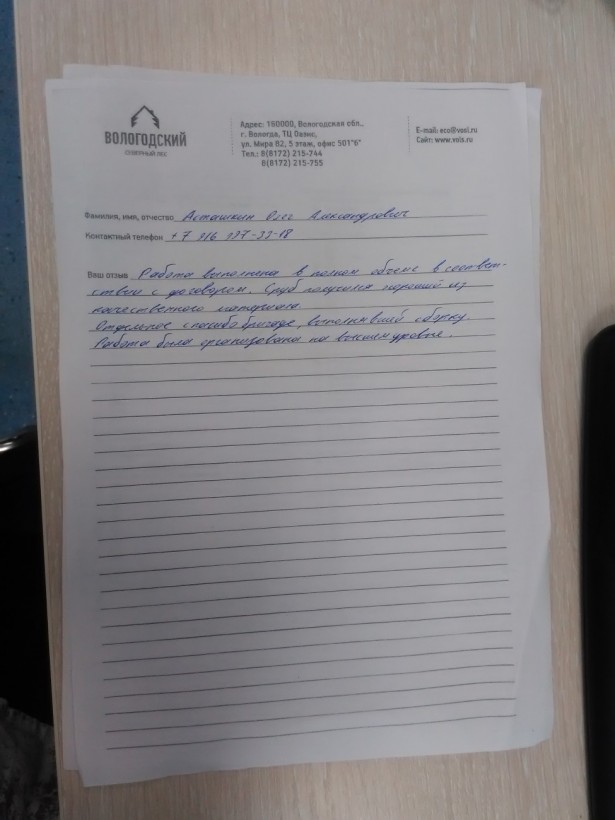 ВОЛОГОДСКИЙ
СЕВЕРНЫЙ ЛЕС
Адрес: 160000, Вологодская обл.,
г. Вологда, ТЦ Оазис,
ул. Мира 82, 5 этаж, офис 501"б"
Тел.: 8(8172) 215-744
8(8172) 215-755
E-mail: eco@vosl.ru
Сайт: www.vsls.ru
Фамилия, имя, отчество Асташкин Олег Александрович
Контактный телефон +7 916 937-33-18
Ваш отзыв Работа выполнена в полном объеме в соответ-
ствии с договором. Сруб получился хороший из
качественного материала.
Отдельное спасибо бригаде, выполнявшей сборку.
Работа была организована на высшем уровне.